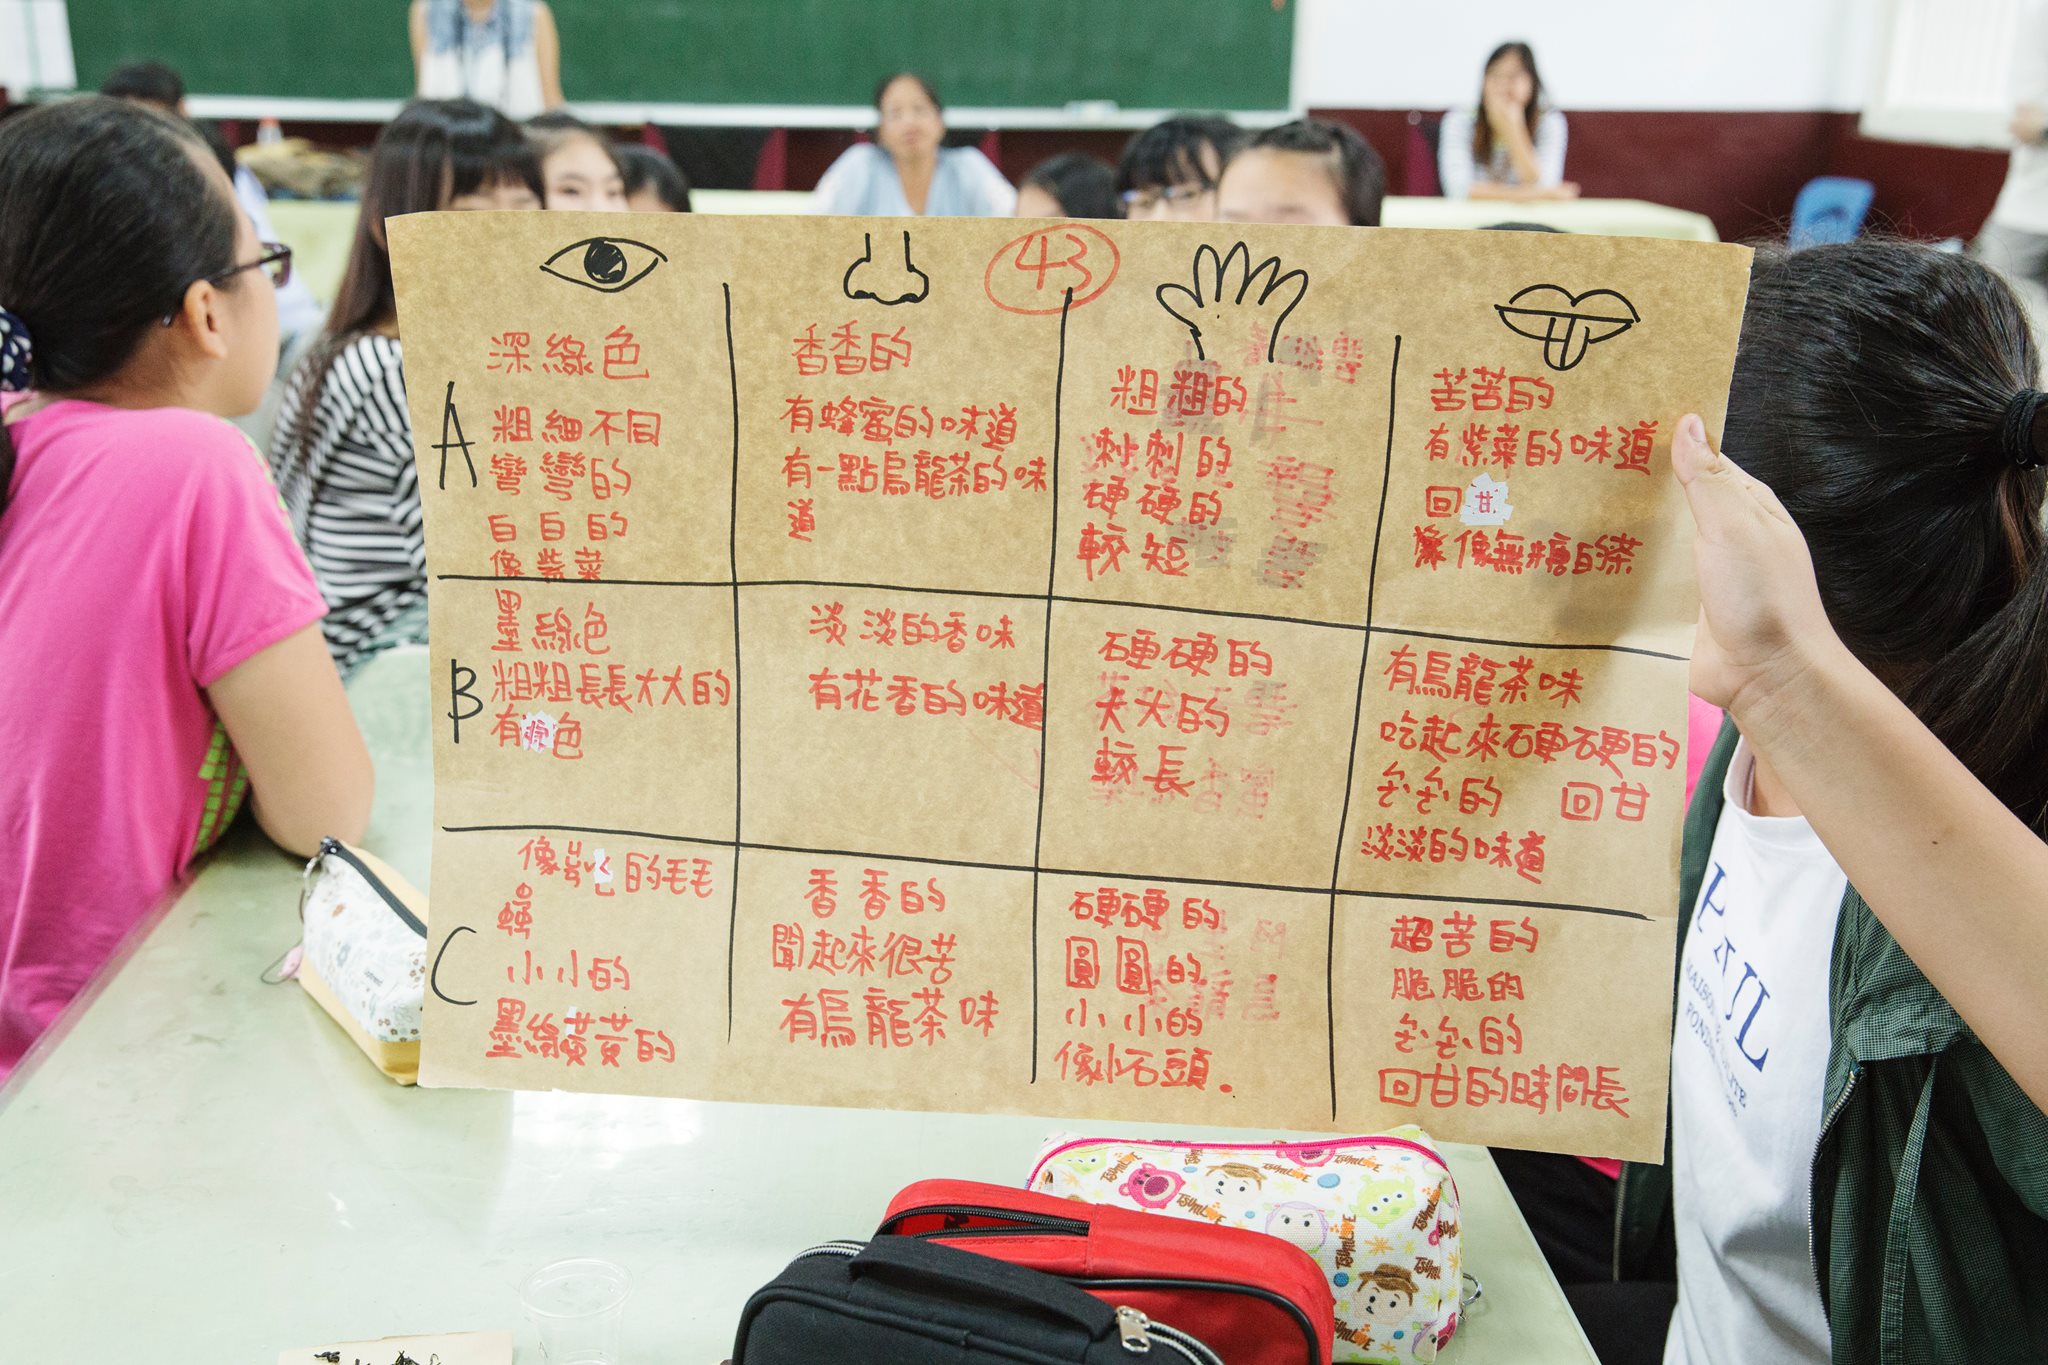 43
A
深綠色
粗細不同
彎彎的
白白的
像紫菜
香香的
有蜂蜜的味道
有一點烏龍茶的味
道
粗粗的
刺刺的
硬硬的
較短
苦苦的
有紫菜的味道
回甘
像無糖的茶
B
墨綠色
粗粗長長大大的
有棕色
淡淡的香味
有花香的味道
硬硬的
大大的
較長
有烏龍茶味
吃起來硬硬的
回甘
淡淡的味道
C
的毛毛
蟲
小小的
墨綠黃黃的
香香的
聞起來很苦
有烏龍茶味
硬硬的
圓圓的
小小的
像小石頭.
超苦的
脆脆的
回甘的時間長